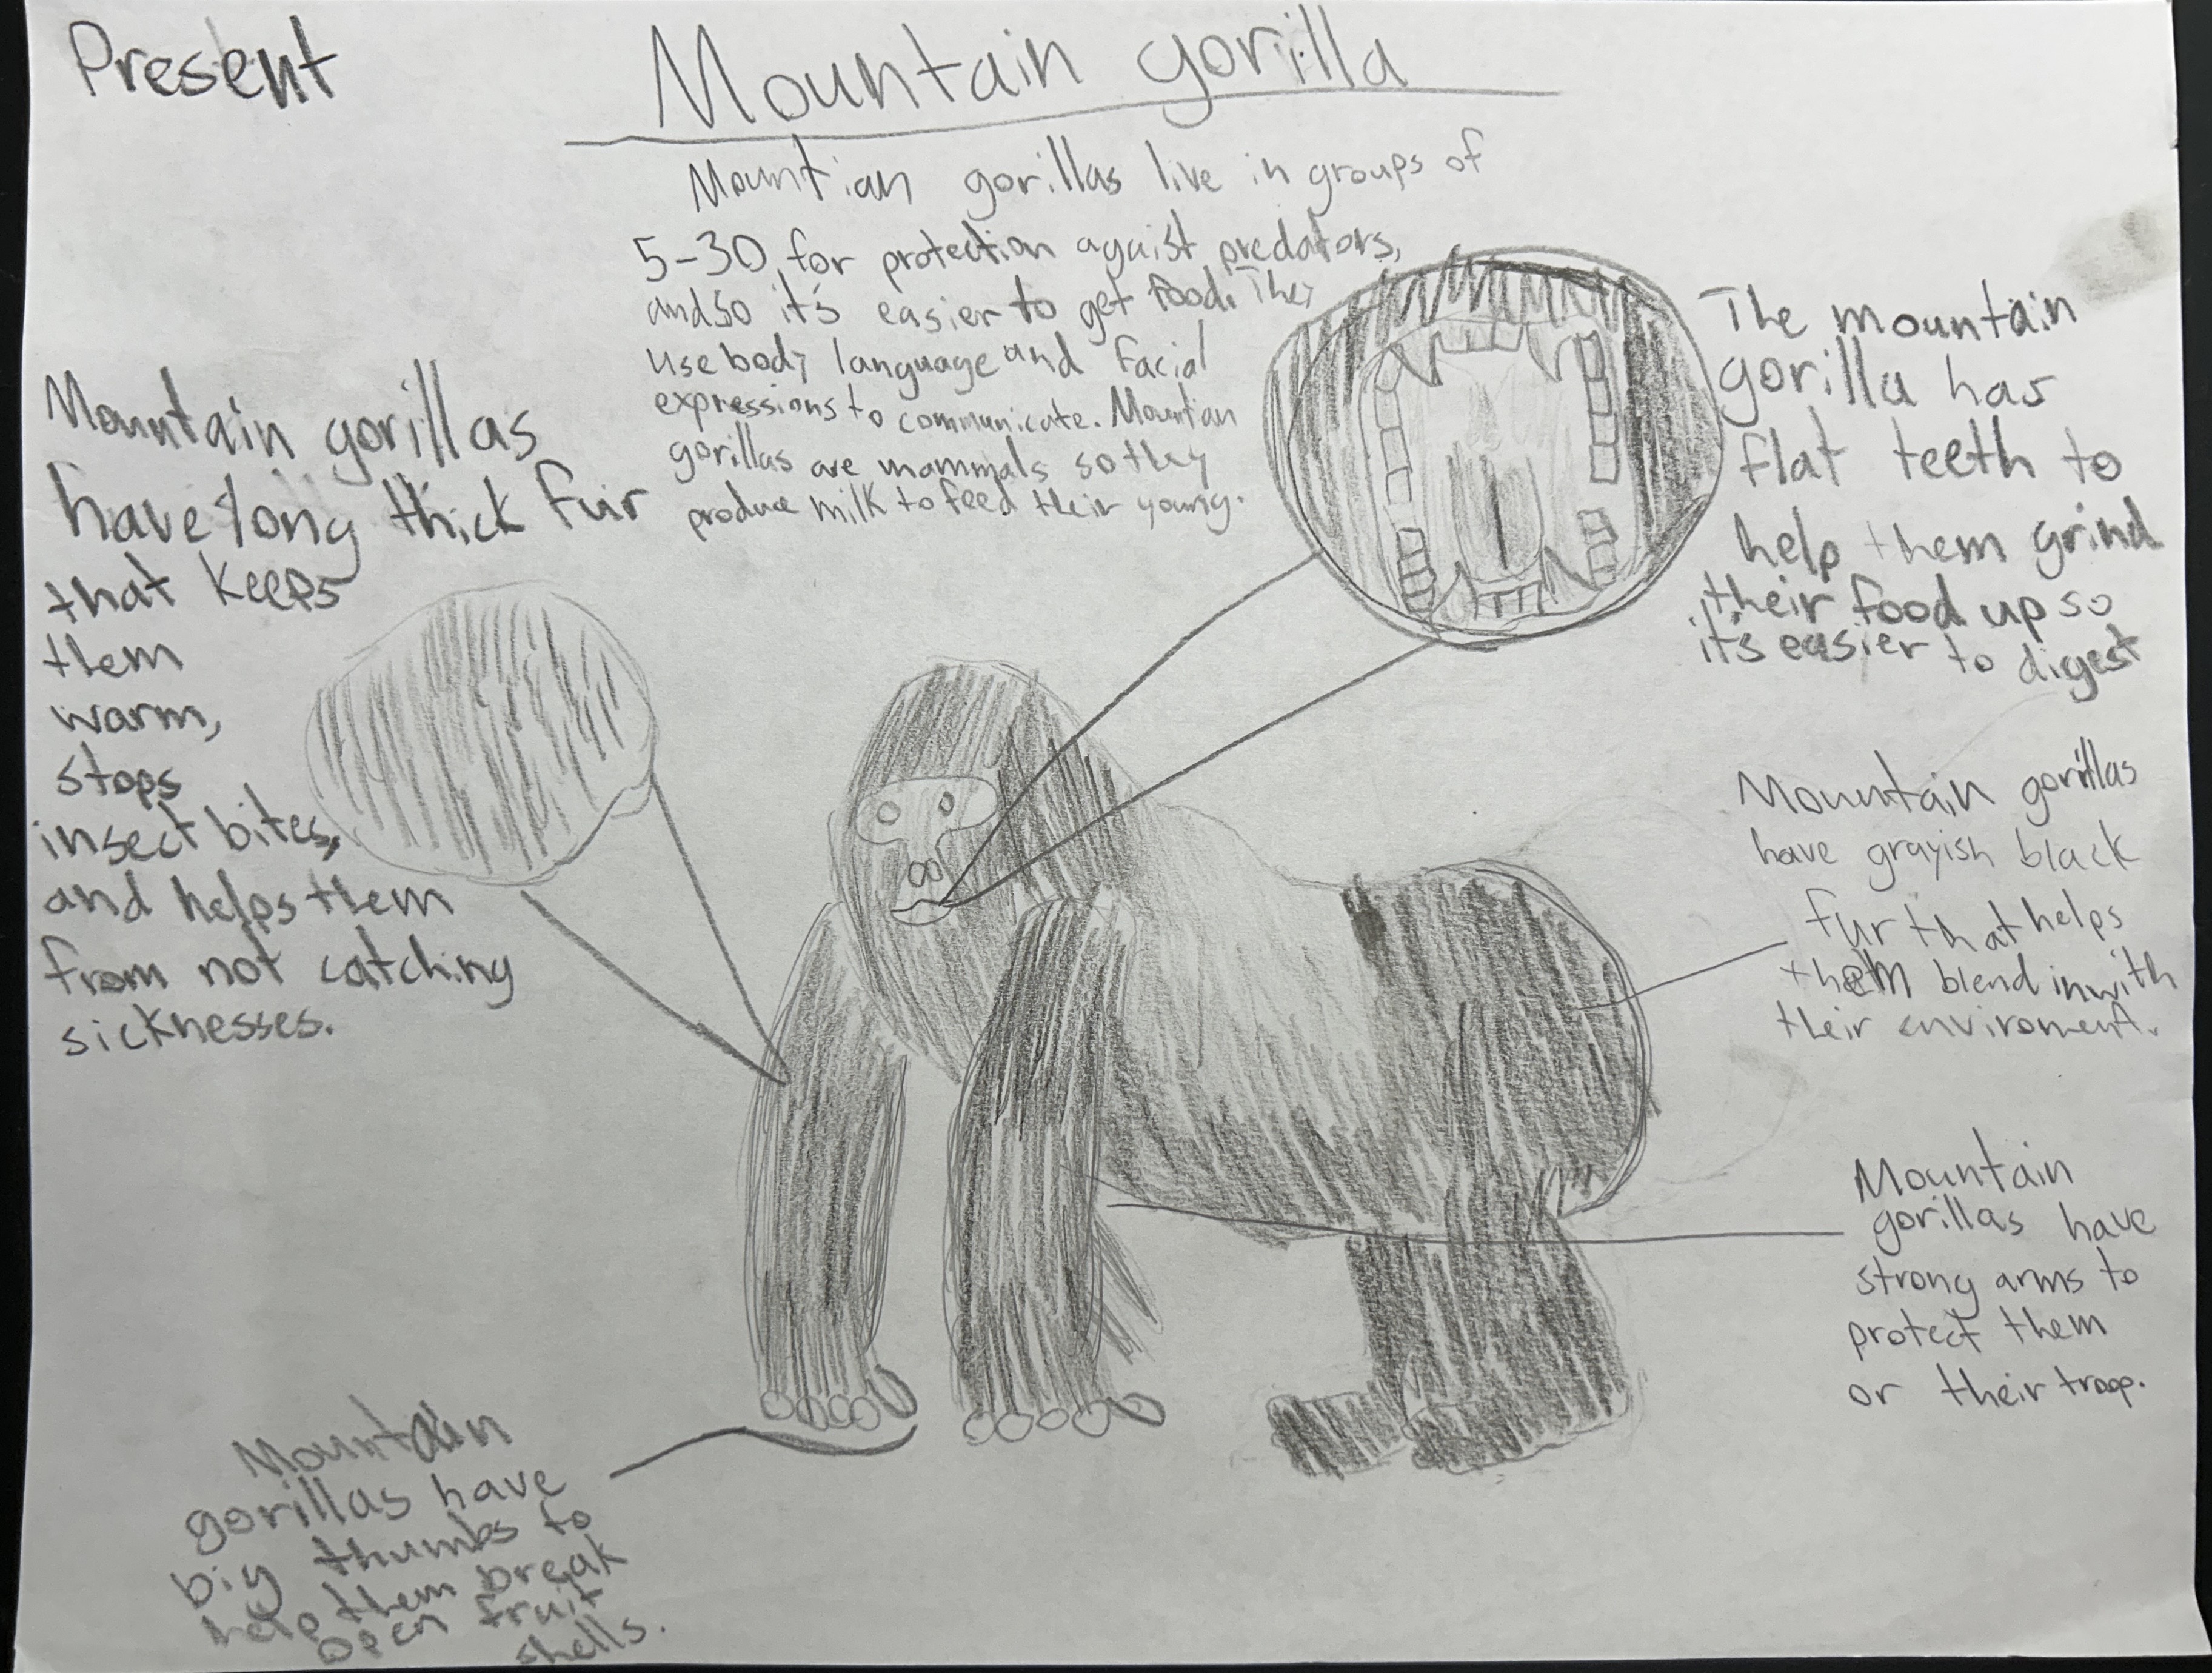 Present
Mountain gorilla
Mountian gorillas live in groups of
5-30, for protection aguist predators,
and so it's easier to get food. They
use body language and facial
expressions to communicate. Mountian
gorillas are mammals so they
produce milk to feed their young.
Mountain gorillas
have long thick fur
that keeps
them
warm,
stops
insect bites,
and helps them
from not catching
sicknesses.
The mountain
gorilla has
flat teeth to
help them grind
their food up so
it's easier to digest
Mountain gorillas
have grayish black
fur that helps
them blend in with
their enviroment.
Mountain
gorillas have
strong arms to
protect them
or their troop.
Mountain
gorillas have
big thumbs to
help them break
open fruit
shells.